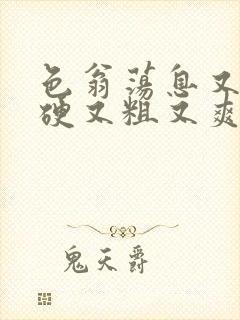 色翁荡息又
硬又粗又爽
鬼天爵